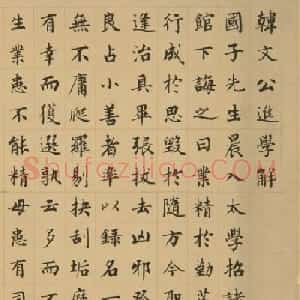 韓文公進學解
國子先生晨入太學招諸
館下誨之曰業精於勤荒
行成於思毀於隨方今聖
逢治具畢張拔去凶邪登
良占小善者率以錄名
無不庸爬羅剔抉刮垢磨
有幸而獲選孰云多而不
生業患不能精毋患有司
Shufaziliao.COM